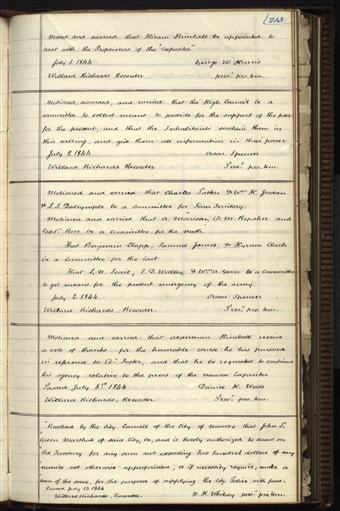 (213
Moved and carried that Hiram Kimball be appointed to
treat with the Proprietors of the "Expositor"
July 1. 1844 George W. Harris
Willard Richards Recorder presᵗ pro. tem.
Motioned, seconded, and carried that the High Council be a
committee to collect means to provide for the support of the poor
for the present, and that the Inhabitants sustain them in
this calling, and give them all information in their power
July 2. 1844 Orson Spencer
Willard Richards Recorder Presᵗ. pro tem.
Motioned and carried that Charles Patten & Wᵐ H. Jordan
& L. S. Dalrymple be a Committee for Iowa Territory.
Motioned and carried that A. Morrison, D. M. Repsher and
Captⁿ Ross be a committee for the north
That Benjamin Clapp, Samuel James, & Hyrum Clark
be a Committee for the East
That L. N. E. D. & Wᵐ be a Committee
to get means for the present emergency of the army.
July 2. 1844 Orson Spencer
Willard Richards, Recorder. Presᵗ pro tem.
Motioned and carried that alderman Kimball receive
a vote of thanks for the honorable course he has pursued
in reference to Dʳ. Foster, and that he be requested to continue
his agency relative to the press of the Nauvoo Expositor
Passed July 8ᵗʰ 1844 Daniel H. Wells
Willard Richards, Recorder Presᵗ. pro. tem.
Resolved by the City Council of the City of Nauvoo that John P.
Green Marshal of said City, be, and is hereby authorized to draw on
the Treasury for any sum not exceeding Two hundred dollars of any
monies not otherwise appropriated; or if necessity require, make a
loan of the same, for the purpose of supplying the City Police with food.
Passed July 13. 1844
Willard Richards, Recorder. N. K. Whitney presᵗ pro tem.